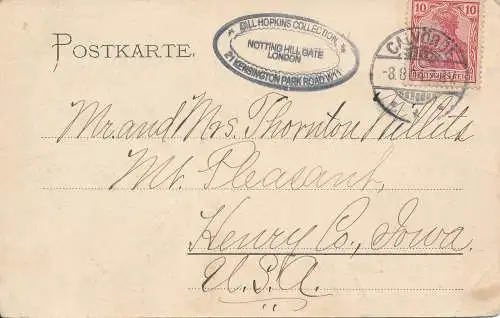 POSTKARTE.
BILL HOPKINS COLLECTION
NOTTING HILL GATE
LONDON
21 KENSINGTON PARK ROAD W11
10 10
DEUTSCHES REICH
-8.8
Mr. and Mrs. Thornton Willits
Mt. Pleasant,
Henry Co., Iowa.
U.S.A.